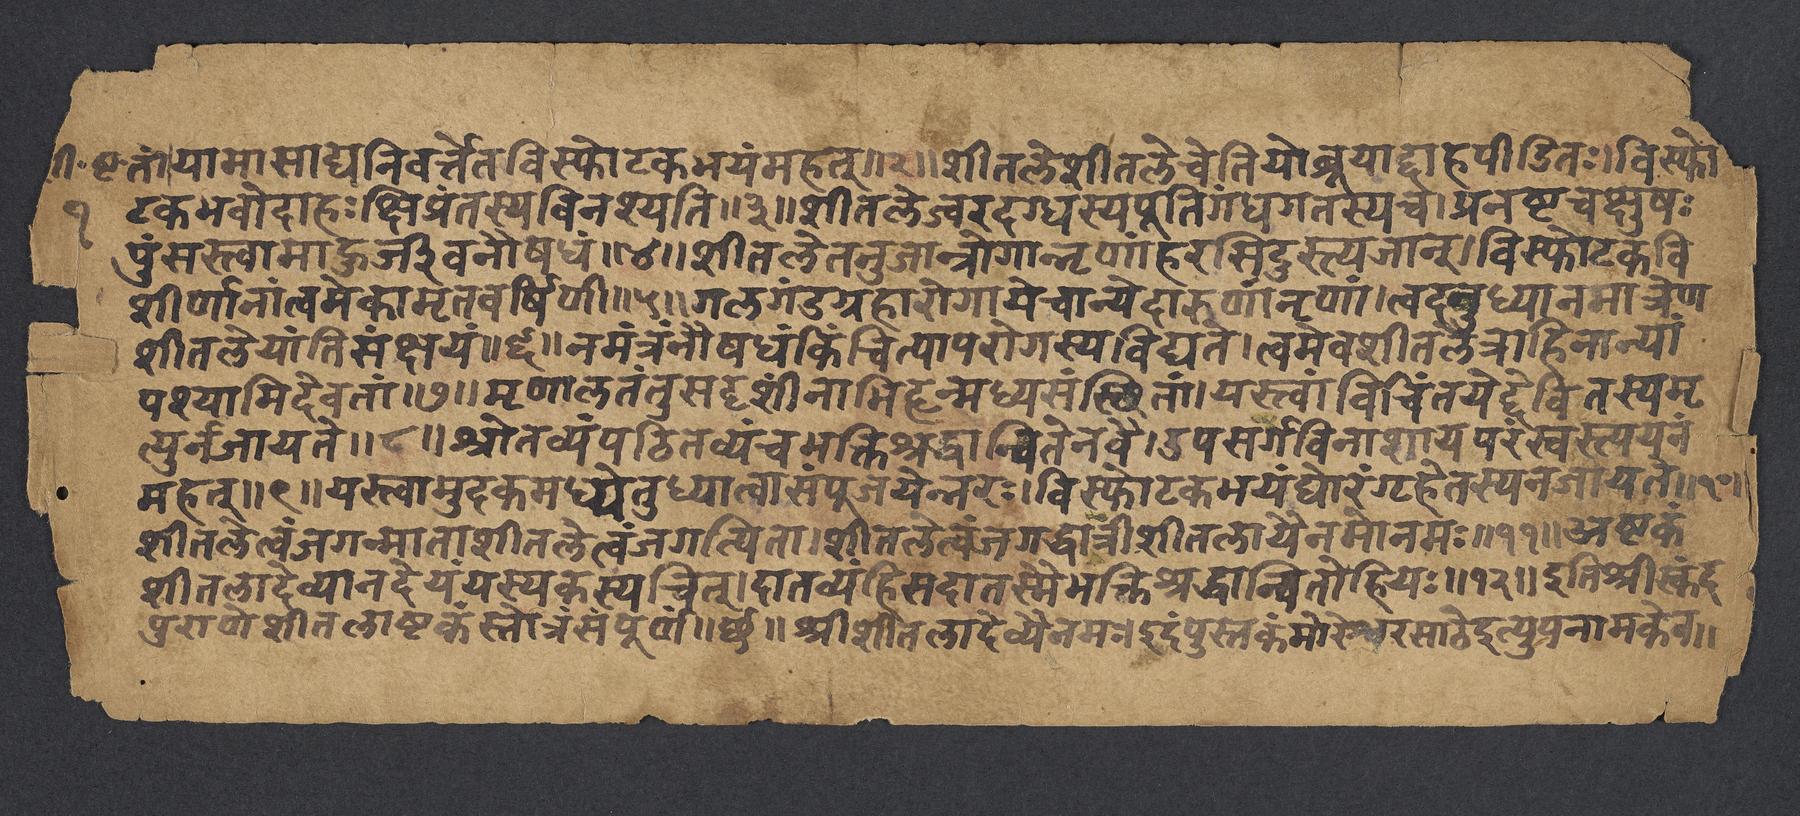 शी॰ष्ट॰ तां यामासाद्यनिवर्त्तेतविस्फोटकभयंमहत् ॥२॥ शीतलेशीतलेचेतियोब्रूयाद्दाहपीडितः। विस्फो
१ टकभवोदाहःक्षिप्रंतस्यविनश्यति ॥३॥ शीतलेज्वरदग्धस्यपूतिगंधगतस्यच। प्रनष्टचक्षुषः
पुंसस्त्वामाहुर्जीवनौषधं ॥४॥ शीतलेतनुजान्रोगान्नृणांहरसिदुस्त्यजान्। विस्फोटकवि
शीर्णानांत्वमेकामृतवर्षिणी ॥५॥ गलगंडग्रहारोगायेचान्येदारुणांनृणां। त्वदनुध्यानमात्रेण
शीतलेयांतिसंक्षयं ॥६॥ नमंत्रंनौषधंकिंचित्पापरोगस्यविद्यते। त्वमेवशीतलेत्राहिनान्यां
पश्यामिदेवतां ॥७॥ मृणालतंतुसदृशींनाभिहृन्मध्यसंस्थितां। यस्त्वांविचिंतयेद्देवितस्यमृ
त्युर्नजायते ॥८॥ श्रोतव्यंपठितव्यंचभक्तिश्रद्धान्वितेनवै। उपसर्गविनाशायपरंस्वस्त्ययनं
महत् ॥९॥ यस्त्वामुदकमध्येतुध्यात्वासंपूजयेन्नरः। विस्फोटकभयंघोरंगृहेतस्यनजायते ॥१०॥
शीतलेत्वंजगन्माताशीतलेत्वंजगत्पिता। शीतलेत्वंजगद्धात्रीशीतलायैनमोनमः ॥११॥ अष्टकं
शीतलादेव्यानदेयंयस्यकस्यचित्। दातव्यंहिसदातस्मैभक्तिश्रद्धान्वितोहियः ॥१२॥ इतिश्रीस्कंद
पुराणेशीतलाष्टकंस्तोत्रंसंपूर्णं ॥छ॥ श्रीशीतलादेव्यैनमः॥ इदंपुस्तकंमोरेश्वरसाठेइत्युपनामकेन ॥